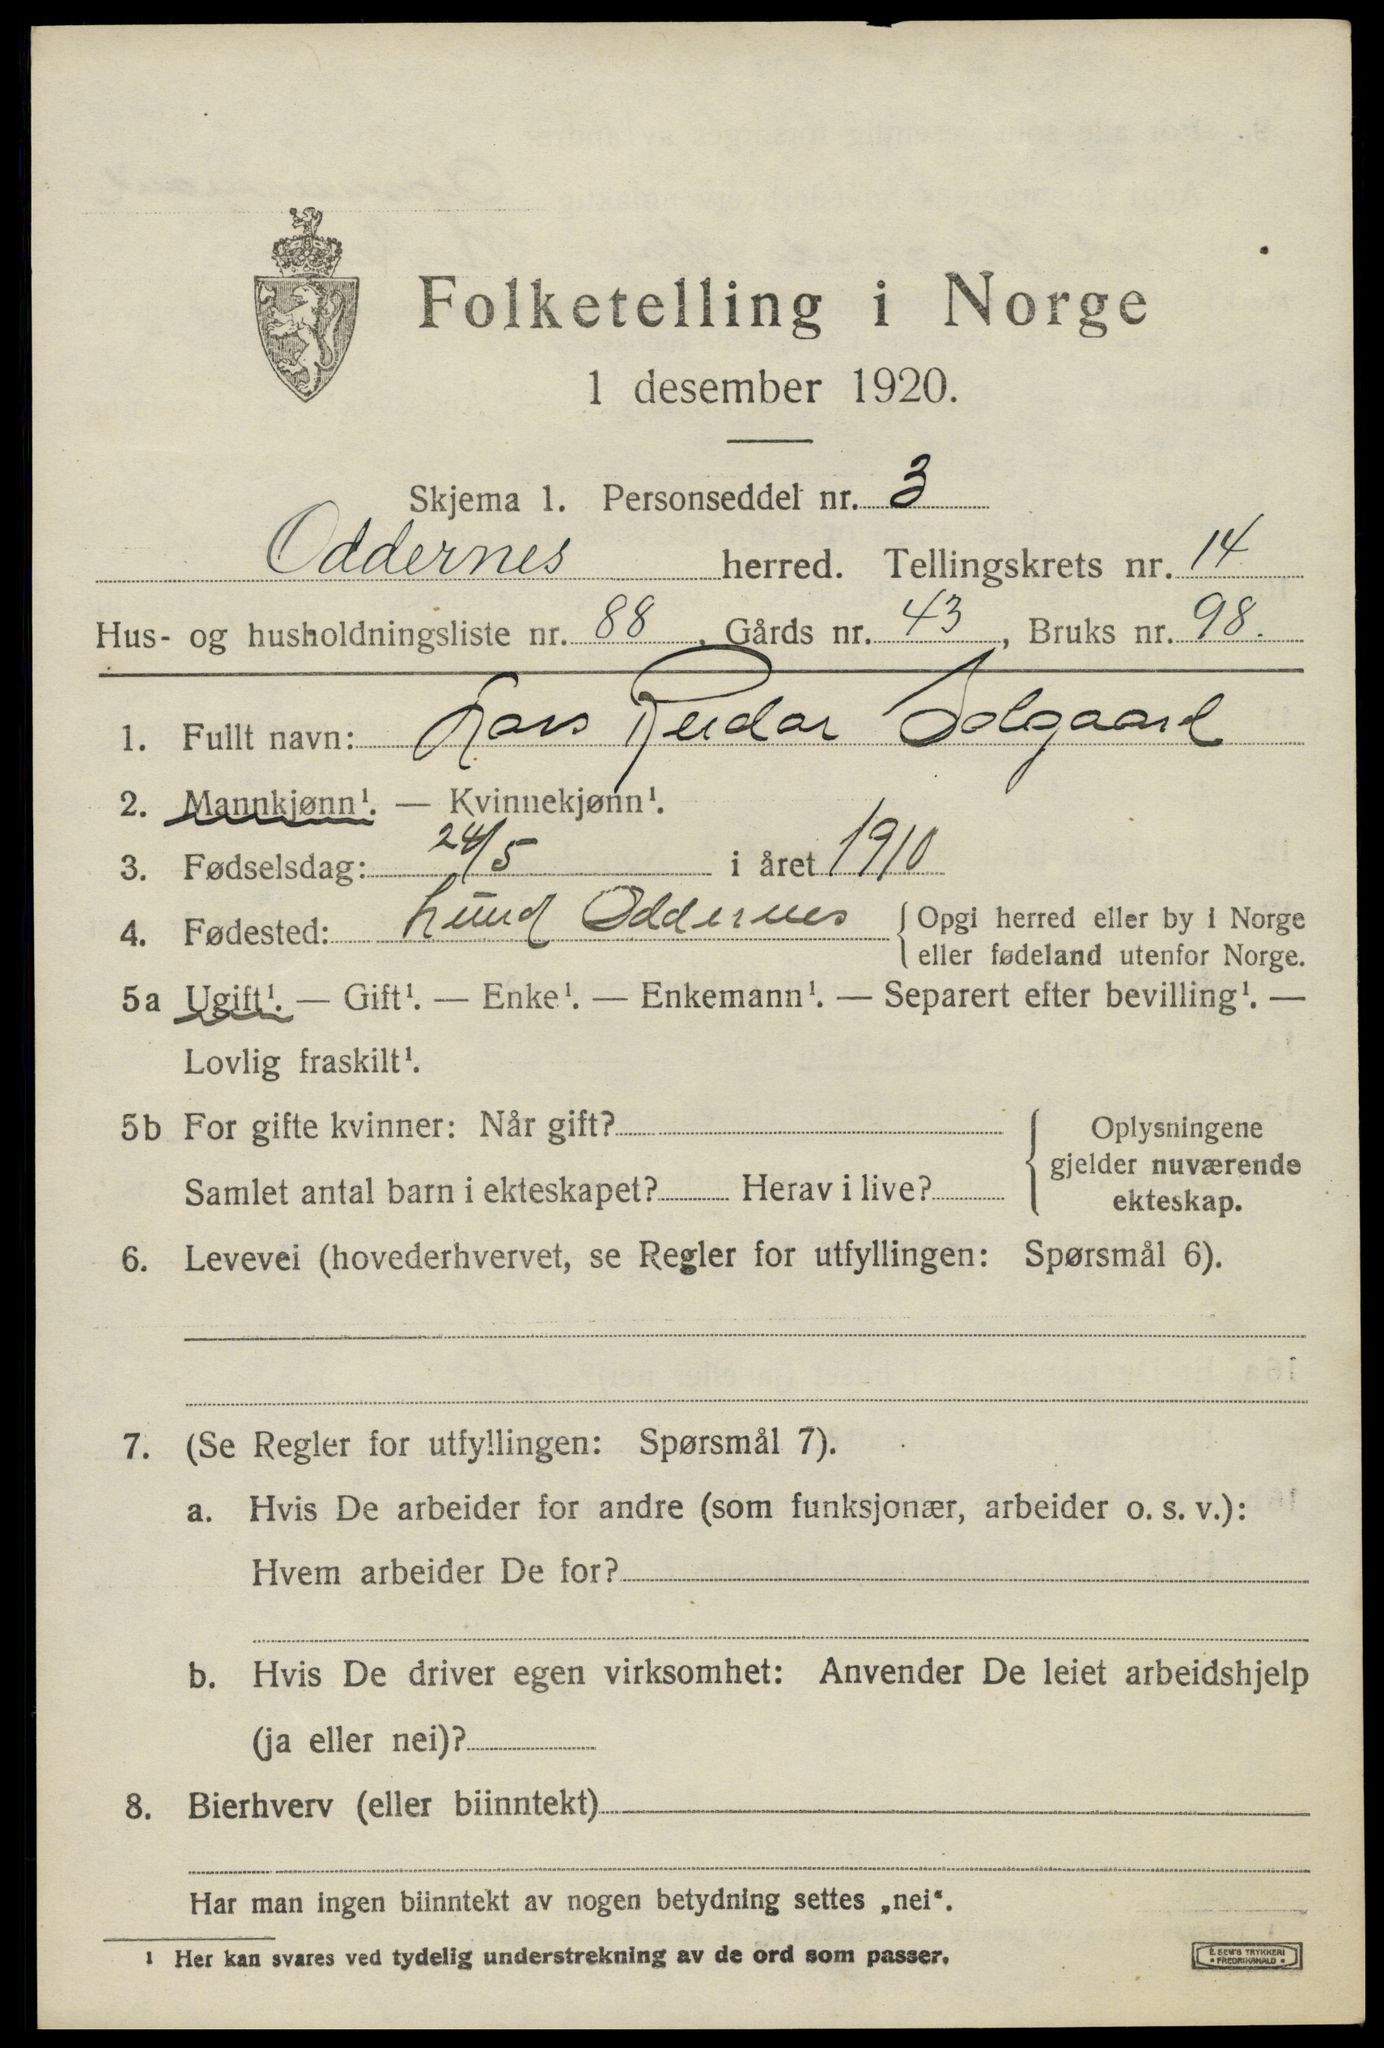 Folketelling i Norge
1 desember 1920.
Skjema 1. Personseddel nr. 3
Oddernes herred. Tellingskrets nr. 14
Hus- og husholdningsliste nr. 88, Gårds nr. 43, Bruks nr. 98.
1. Fullt navn: Lars Reidar Solgaard
2. Mannkjønn¹. — Kvinnekjønn¹.
3. Fødselsdag: 24/5 i året 1910
4. Fødested: Lund Oddernes { Opgi herred eller by i Norge
eller fødeland utenfor Norge.
5a Ugift¹. — Gift¹. — Enke¹. — Enkemann¹. — Separert efter bevilling¹. —
Lovlig fraskilt¹.
5b For gifte kvinner: Når gift? { Oplysningene
gjelder nuværende
Samlet antal barn i ekteskapet? Herav i live? ekteskap.
6. Levevei (hovederhvervet, se Regler for utfyllingen: Spørsmål 6).
7. (Se Regler for utfyllingen: Spørsmål 7).
a. Hvis De arbeider for andre (som funksjonær, arbeider o. s. v.):
Hvem arbeider De for?
b. Hvis De driver egen virksomhet: Anvender De leiet arbeidshjelp
(ja eller nei)?
8. Bierhverv (eller biinntekt)
Har man ingen biinntekt av nogen betydning settes „nei“.
¹ Her kan svares ved tydelig understrekning av de ord som passer.
E. SEM'S TRYKKERI
FREDRIKSHALD